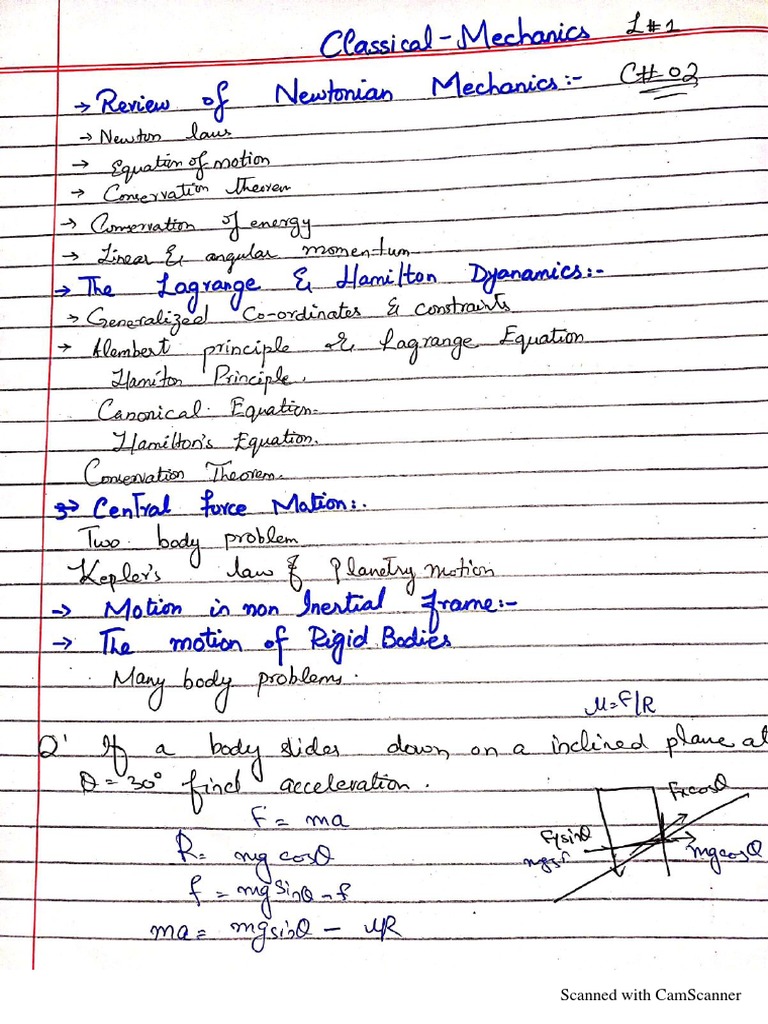 Classical-Mechanics L#1
→ Review of Newtonian Mechanics:- C# 02
→ Newton laws
→ Equation of motion
→ Conservation theorem
→ Conservation of energy
→ Linear & angular momentum
→ The Lagrange & Hamilton Dyanamics:-
→ Generalized Co-ordinates & constraints
→ Alembert principle & Lagrange Equation
Hamilton Principle.
Canonical Equation.
Hamilton's Equation.
Conservation Theorem.
3→ Central force Motion:.
Two body problem
Kepler's law of Planetry motion
→ Motion in non Inertial frame:-
→ The motion of Rigid Bodies
Many body problems.
μ=F/R
Q' If a body slides down on a inclined plane at
θ = 30° find acceleration.
F = ma
R = mg cosθ
f = mg sinθ - f
ma = mg sinθ - μR
Fxcosθ
Fysinθ
mgcosθ
Scanned with CamScanner